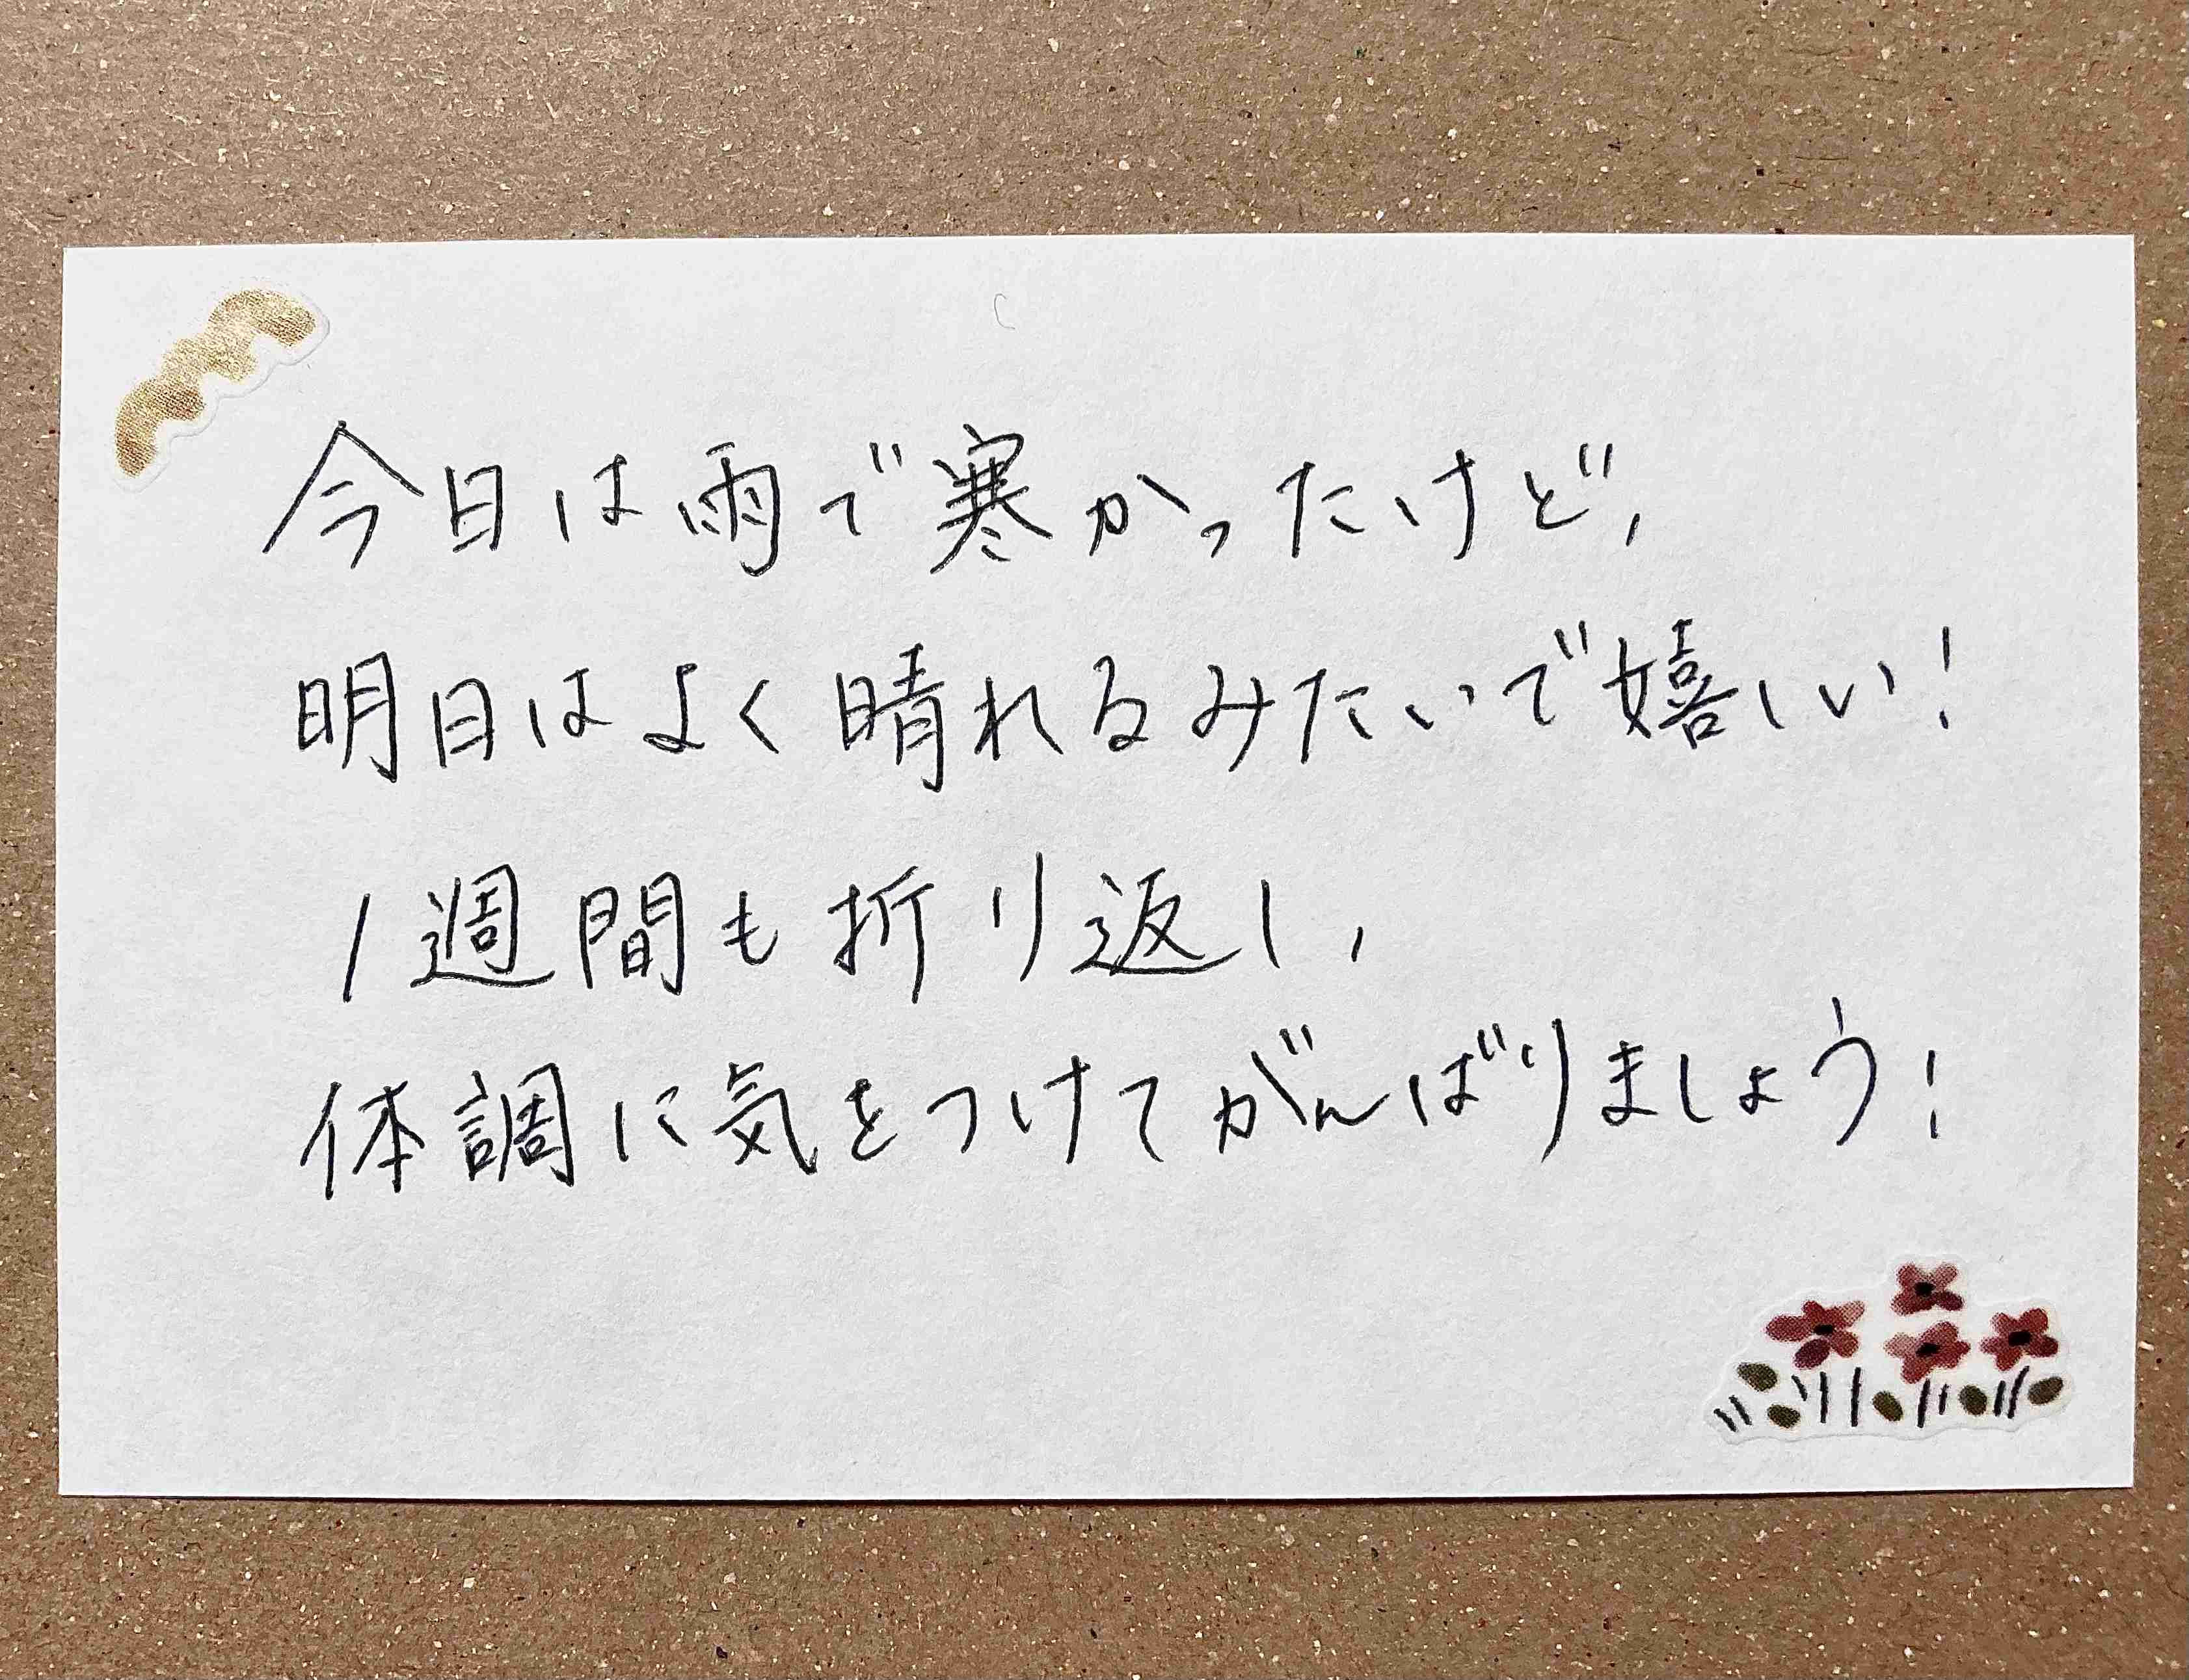 今日は雨で寒かったけど,
明日はよく晴れるみたいで嬉しい!
1週間も折り返し,
体調に気をつけてがんばりましょう!